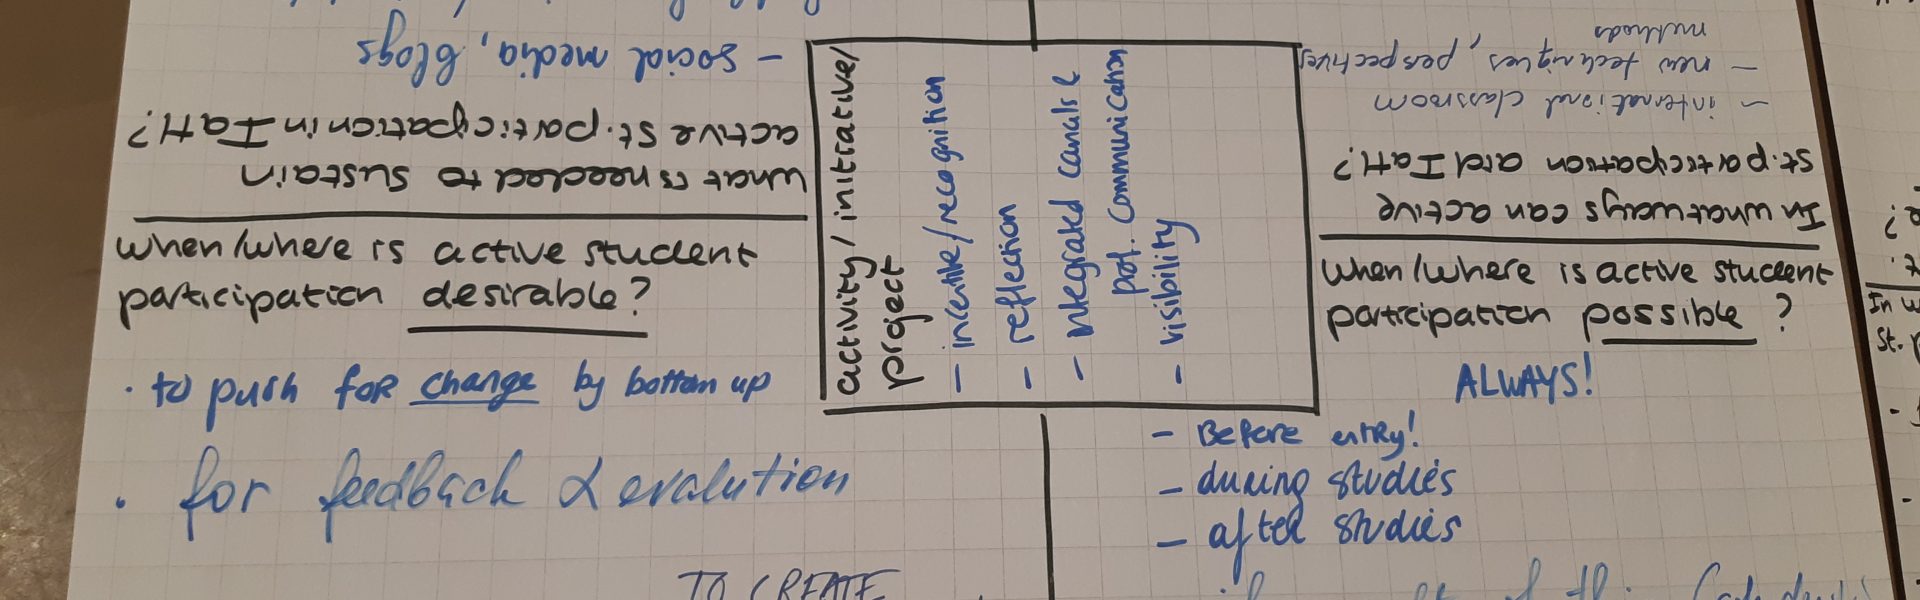 What is needed to sustain
active st. participation in IatH?
- social media, blogs
In what ways can active
st. participation aid IatH?
- international classroom
- new techniques, perspectives,
methods
activity/initiative/
project
- incentive/recognition
- reflection
- integrated canals &
pot. communication
- visibility
When/where is active student
participation desirable?
· to push for change by bottom up
· for feedback & evalution
TO CREATE
When/where is active student
participation possible?
ALWAYS!
- Before entry!
- during studies
- after studies
In w
st. p